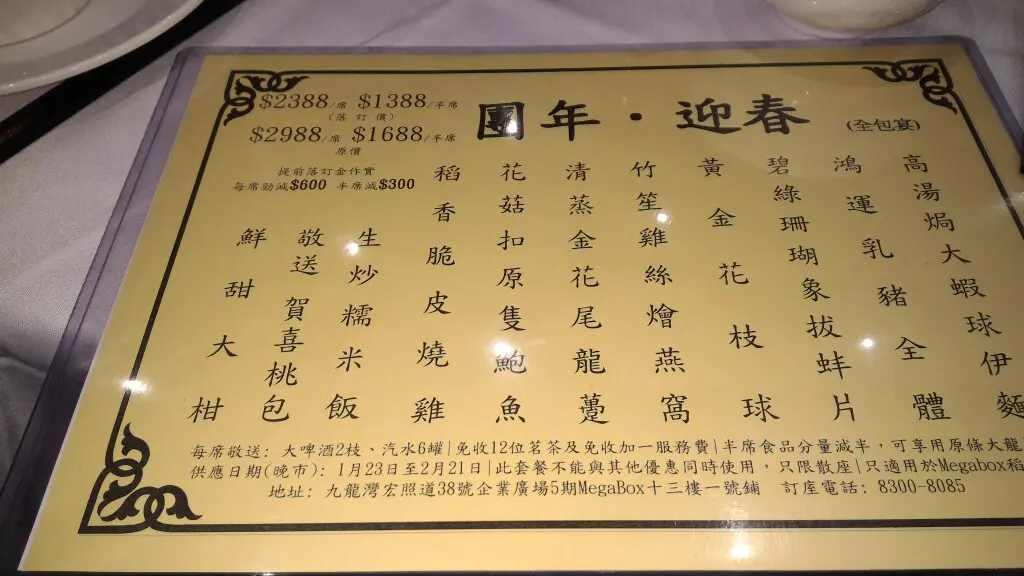 團年・迎春 (全包宴)
$2388/席 $1388/半席
(落訂價)
$2988/席 $1688/半席
原價
提前落訂金作實
每席勁減$600 半席減$300
高湯焗大蝦球伊麵
鴻運乳豬全體
碧綠珊瑚象拔蚌片
黃金花枝球
竹笙雞絲燴燕窩
清蒸金花尾龍躉
花菇扣原隻鮑魚
稻香脆皮燒雞
生炒糯米飯
敬送賀喜桃包
鮮甜大柑
每席敬送: 大啤酒2枝、汽水6罐|免收12位茗茶及免收加一服務費|半席食品分量減半，可享用原條大龍
供應日期(晚市): 1月23日至2月21日|此套餐不能與其他優惠同時使用，只限散座|只適用於Megabox稻
地址: 九龍灣宏照道38號企業廣場5期MegaBox十三樓一號鋪 訂座電話: 8300-8085